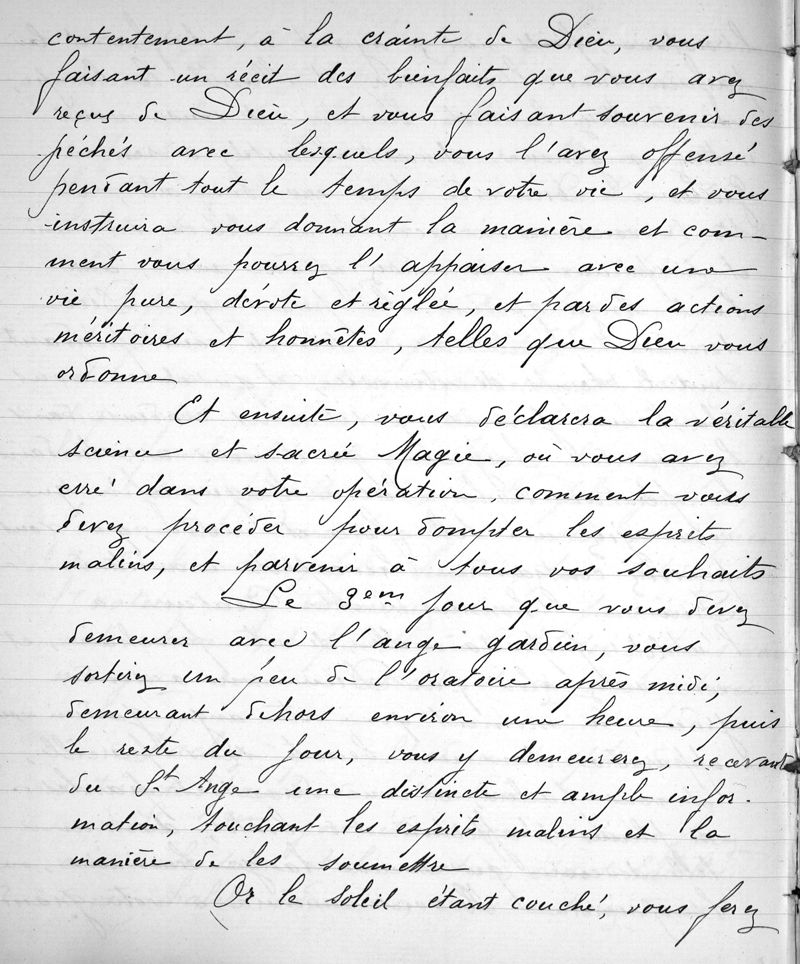 contentement, à la crainte de Dieu, vous
faisant un récit des bienfaits que vous avez
reçus de Dieu, et vous faisant souvenir des
péchés avec lesquels, vous l'avez offensé
pendant tout le temps de votre vie, et vous
instruira vous donnant la manière et com-
ment vous pourrez l'appaiser avec une
vie pure, dévote et réglée, et par des actions
méritoires et honnêtes, telles que Dieu vous
ordonne
Et ensuite, vous déclarera la véritable
science et sacrée Magie, où vous avez
erré dans votre opération, comment vous
devez procéder pour dompter les esprits
malins, et parvenir à tous vos souhaits
Le 3eme jour que vous devez
demeurer avec l'ange gardien, vous
sortirez un peu de l'oratoire après midi,
demeurant dehors environ une heure, puis
le reste du jour, vous y demeurerez, recevant
du St Ange une distincte et ample infor-
mation, touchant les esprits malins et la
manière de les soumettre
Or le soleil étant couché, vous ferez